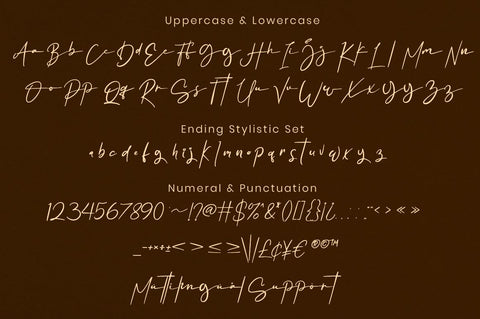 Uppercase & Lowercase
Aa Bb Cc Dd Ee Ff Gg Hh Ii Jj Kk Ll Mm Nn
Oo Pp Qq Rr Ss Tt Uu Vv Ww Xx Yy Zz
Ending Stylistic Set
a b c d e f g h i j k l m n o p q r s t u v w x y z
Numeral & Punctuation
1234567890·~!?@#$%^&*()[]{}¡¿.,:;'"‹›«»
_-+×÷±<>≤≥\|/£¢¥€®©™
Multilingual Support